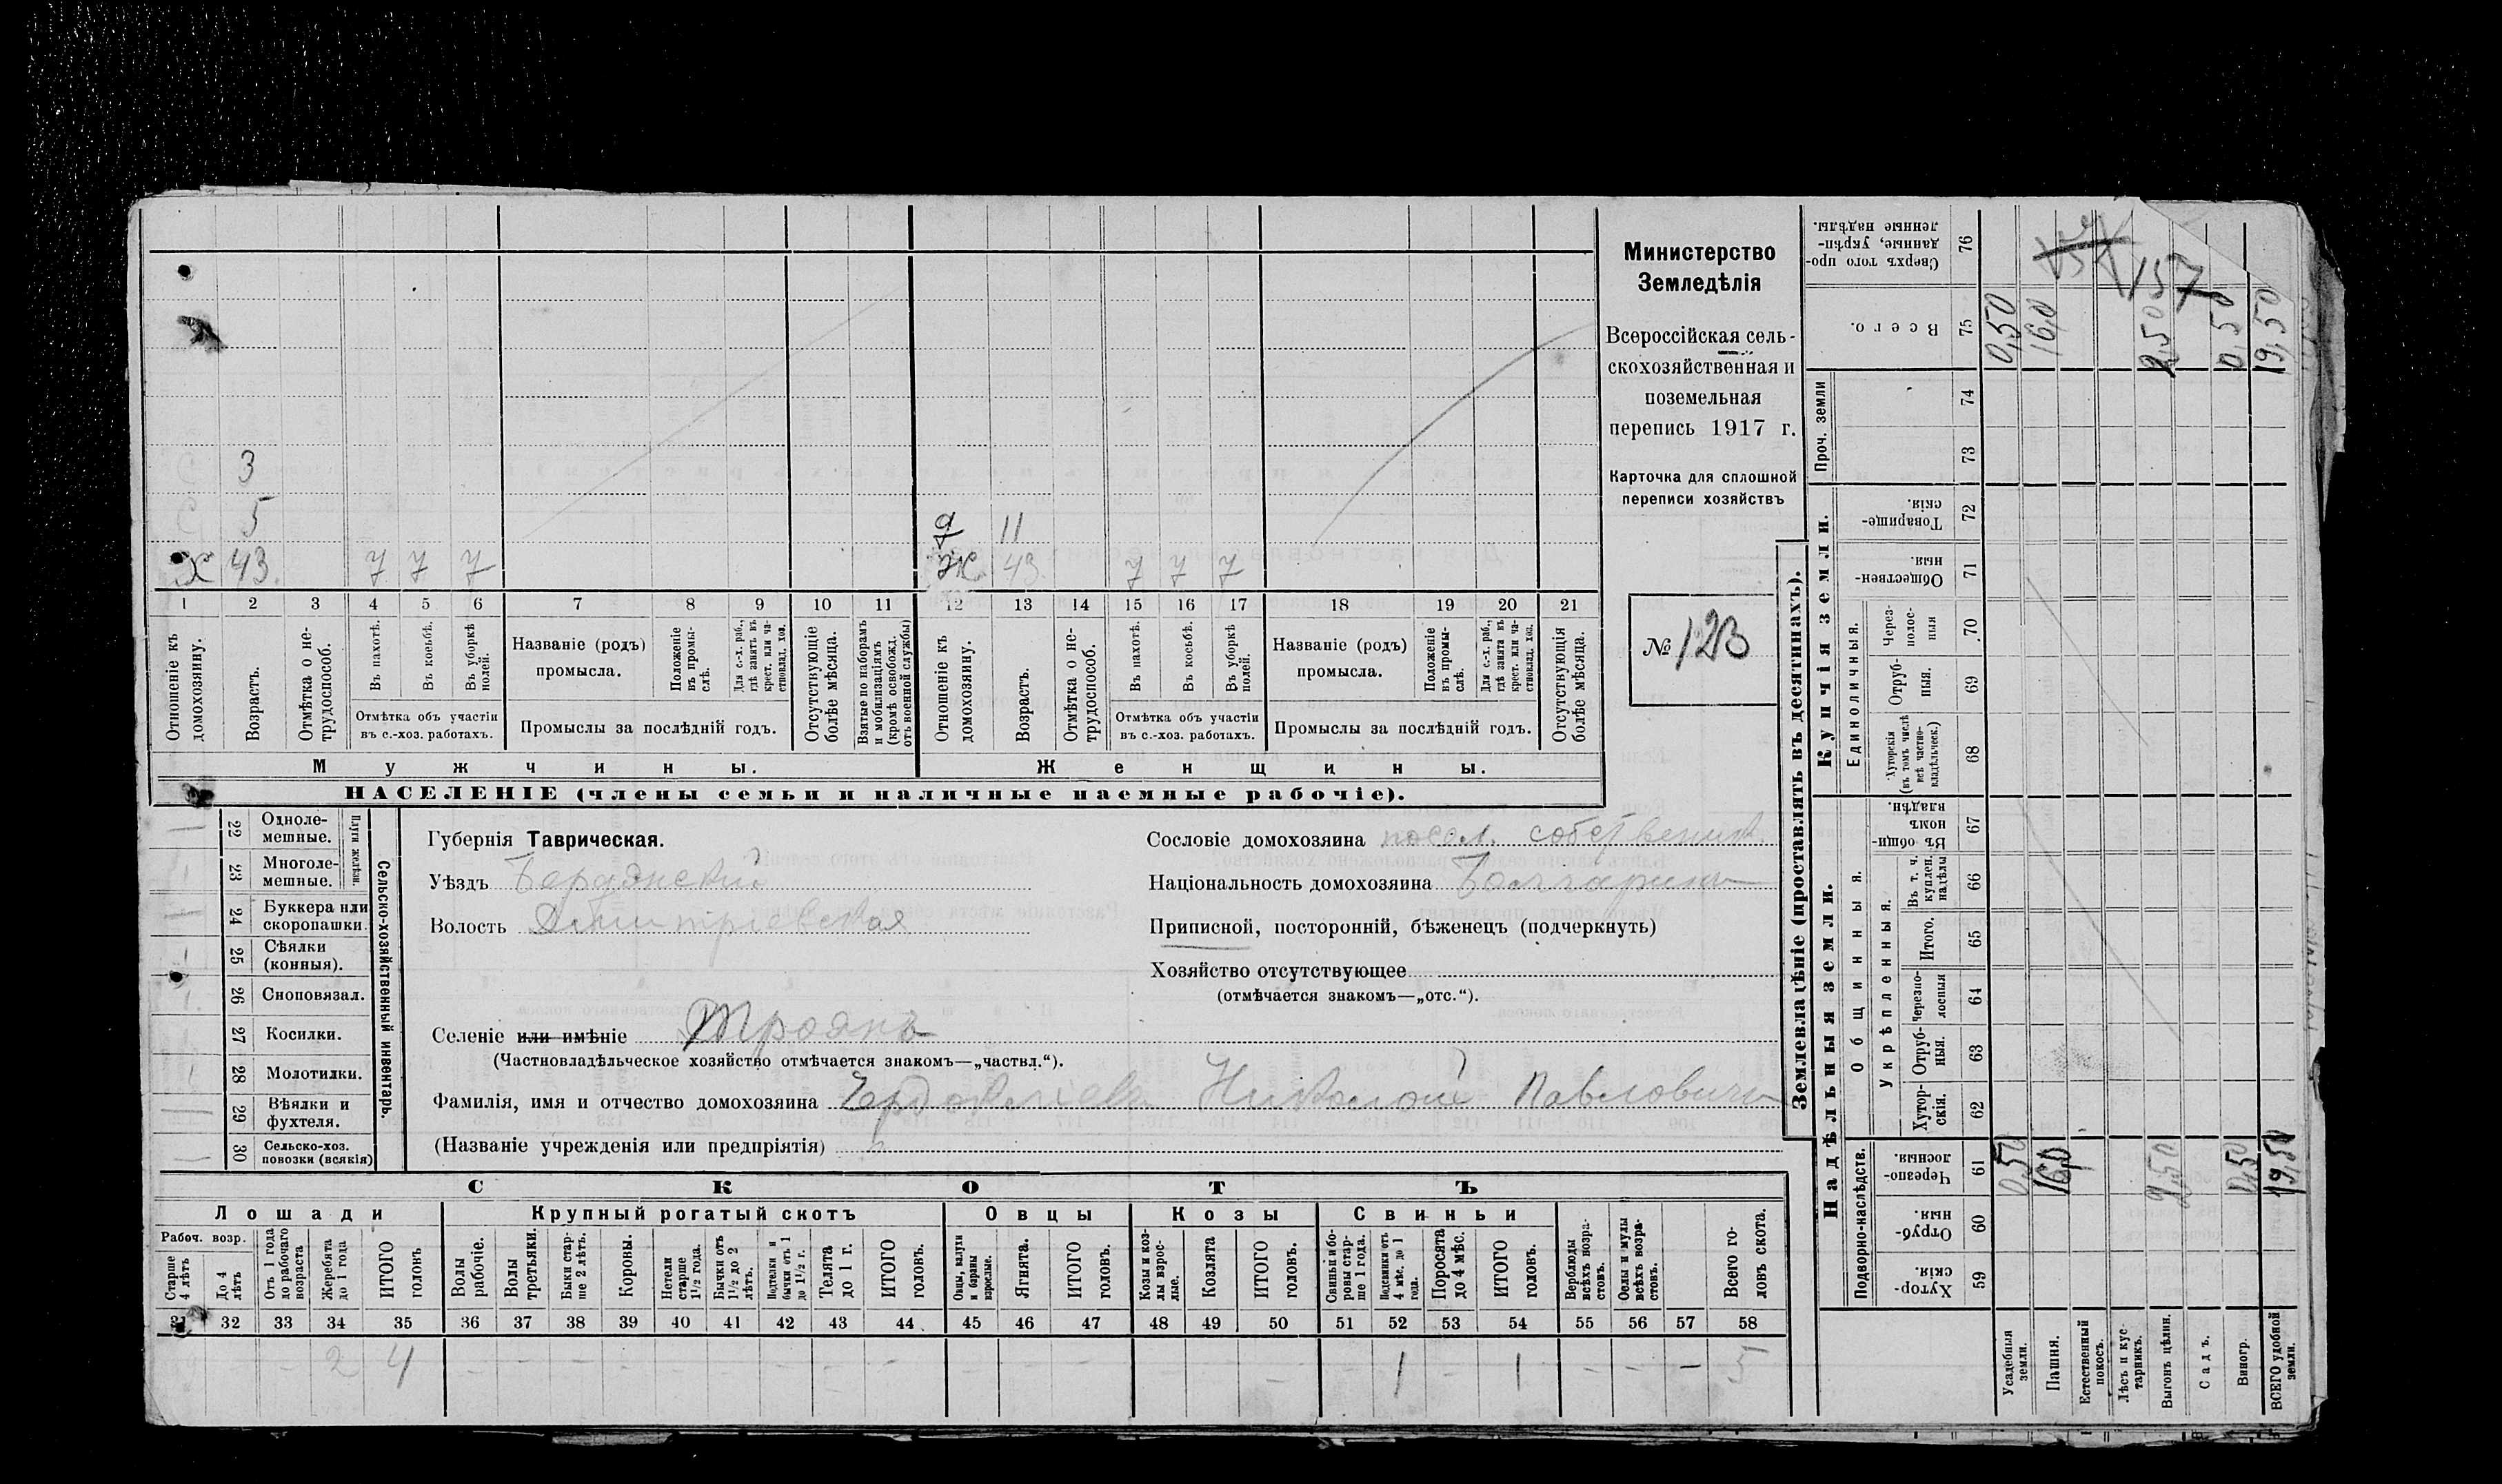 3
5
Х 43 7 7 7
д 11
Ж 43 7 7 7
1 2 3 4 5 6 7 8 9 10 11 12 13 14 15 16 17 18 19 20 21
Отношеніе къ домохозяину.
Возрастъ.
Отмѣтка о нетрудоспособ.
Въ пахотѣ.
Въ косьбѣ.
Въ уборкѣ полей.
Отмѣтка объ участіи въ с.-хоз. работахъ.
Названіе (родъ) промысла.
Положеніе въ промыслѣ.
Для с.-х. раб., гдѣ занятъ въ крест. или частновлад. хоз.
Промыслы за послѣдній годъ.
Отсутствующіе болѣе мѣсяца.
Взятые по наборамъ и мобилизаціямъ (кромѣ освобожд. отъ военной службы)
Отношеніе къ домохозяину.
Возрастъ.
Отмѣтка о нетрудоспособ.
Въ пахотѣ.
Въ косьбѣ.
Въ уборкѣ полей.
Отмѣтка объ участіи въ с.-хоз. работахъ.
Названіе (родъ) промысла.
Положеніе въ промыслѣ.
Для с.-х. раб., гдѣ занята въ крест. или частновлад. хоз.
Промыслы за послѣдній годъ.
Отсутствующія болѣе мѣсяца.
Мужчины.
Женщины.
НАСЕЛЕНІЕ (члены семьи и наличные наемные рабочіе).
Министерство
Земледѣлія
Всероссійская сель-
скохозяйственная и
поземельная
перепись 1917 г.
Карточка для сплошной
переписи хозяйствъ
№ 123
22 Одноле-мешные.
23 Многоле-мешные.
Плуги желѣзн.
24 Буккера или скоропашки.
25 Сѣялки (конныя).
26 Сноповязал.
27 Косилки.
28 Молотилки.
29 Вѣялки и фухтеля.
30 Сельско-хоз. повозки (всякія)
Сельско-хозяйственный инвентарь.
Губернія Таврическая.
Уѣздъ Бердянскій
Волость Дмитріевская
Селеніе или имѣніе Троянъ
(Частновладѣльческое хозяйство отмѣчается знакомъ—„частвл.“).
Фамилія, имя и отчество домохозяина Николай Павловичъ
(Названіе учрежденія или предпріятія)
Сословіе домохозяина посел. собственник.
Національность домохозяина Болгаринъ
Приписной, посторонній, бѣженецъ (подчеркнуть)
Хозяйство отсутствующее
(отмѣчается знакомъ—„отс.“).
СКОТЪ
Лошади
Крупный рогатый скотъ
Овцы
Козы
Свиньи
Рабоч. возр.
Старше 4 лѣтъ
До 4 лѣтъ
Отъ 1 года до рабочаго возраста
Жеребята до 1 года
ИТОГО головъ
Волы рабочіе.
Волы третьяки.
Быки старше 2 лѣтъ.
Коровы.
Нетели старше 1½ года.
Бычки отъ 1½ до 2 лѣтъ.
Подтелки и бычки отъ 1 до 1½ г.
Телята до 1 г.
ИТОГО головъ.
Овцы, валухи и бараны взрослые.
Ягнята.
ИТОГО головъ.
Козы и козлы взрослые.
Козлята
ИТОГО головъ.
Свиньи и боровы старше 1 года.
Подсвинки отъ 4 мѣс. до 1 года.
Поросята до 4 мѣс.
ИТОГО головъ.
Верблюды всѣхъ возрастовъ.
Ослы и мулы всѣхъ возрастовъ.
Всего головъ скота.
32 33 34 35 36 37 38 39 40 41 42 43 44 45 46 47 48 49 50 51 52 53 54 55 56 57 58
2 4 1 1 5
Землевладѣніе (проставлять въ десятинахъ).
Надѣльныя земли.
Купчія земли.
Проч. земли
Подворно-наслѣдств.
Общинныя.
Укрѣпленныя.
Единоличныя.
Хуторскія. 59
Отрубныя. 60
Черезполосныя. 61
Хуторскія. 62
Отрубныя. 63
Черезполосныя 64
Итого. 65
Въ т. ч. куплен. надѣлы 66
Въ общинномъ владѣн. 67
Хуторскія (въ томъ числѣ всѣ частновладѣльческ.) 68
Отрубныя. 69
Черезполосныя 70
Общественныя. 71
Товарищескія. 72
73
74
Всего. 75
Сверхъ того проданные, укрѣпленные надѣлы. 76
157
0,50 16,0 2,50 0,50 19,50
0,50 16,0 2,50 0,50 19,50
Усадебныя земли.
Пашня.
Естественный покосъ.
Лѣсъ и кустарникъ.
Выгонъ цѣлин.
Садъ.
Виногр.
ВСЕГО удобной земли.